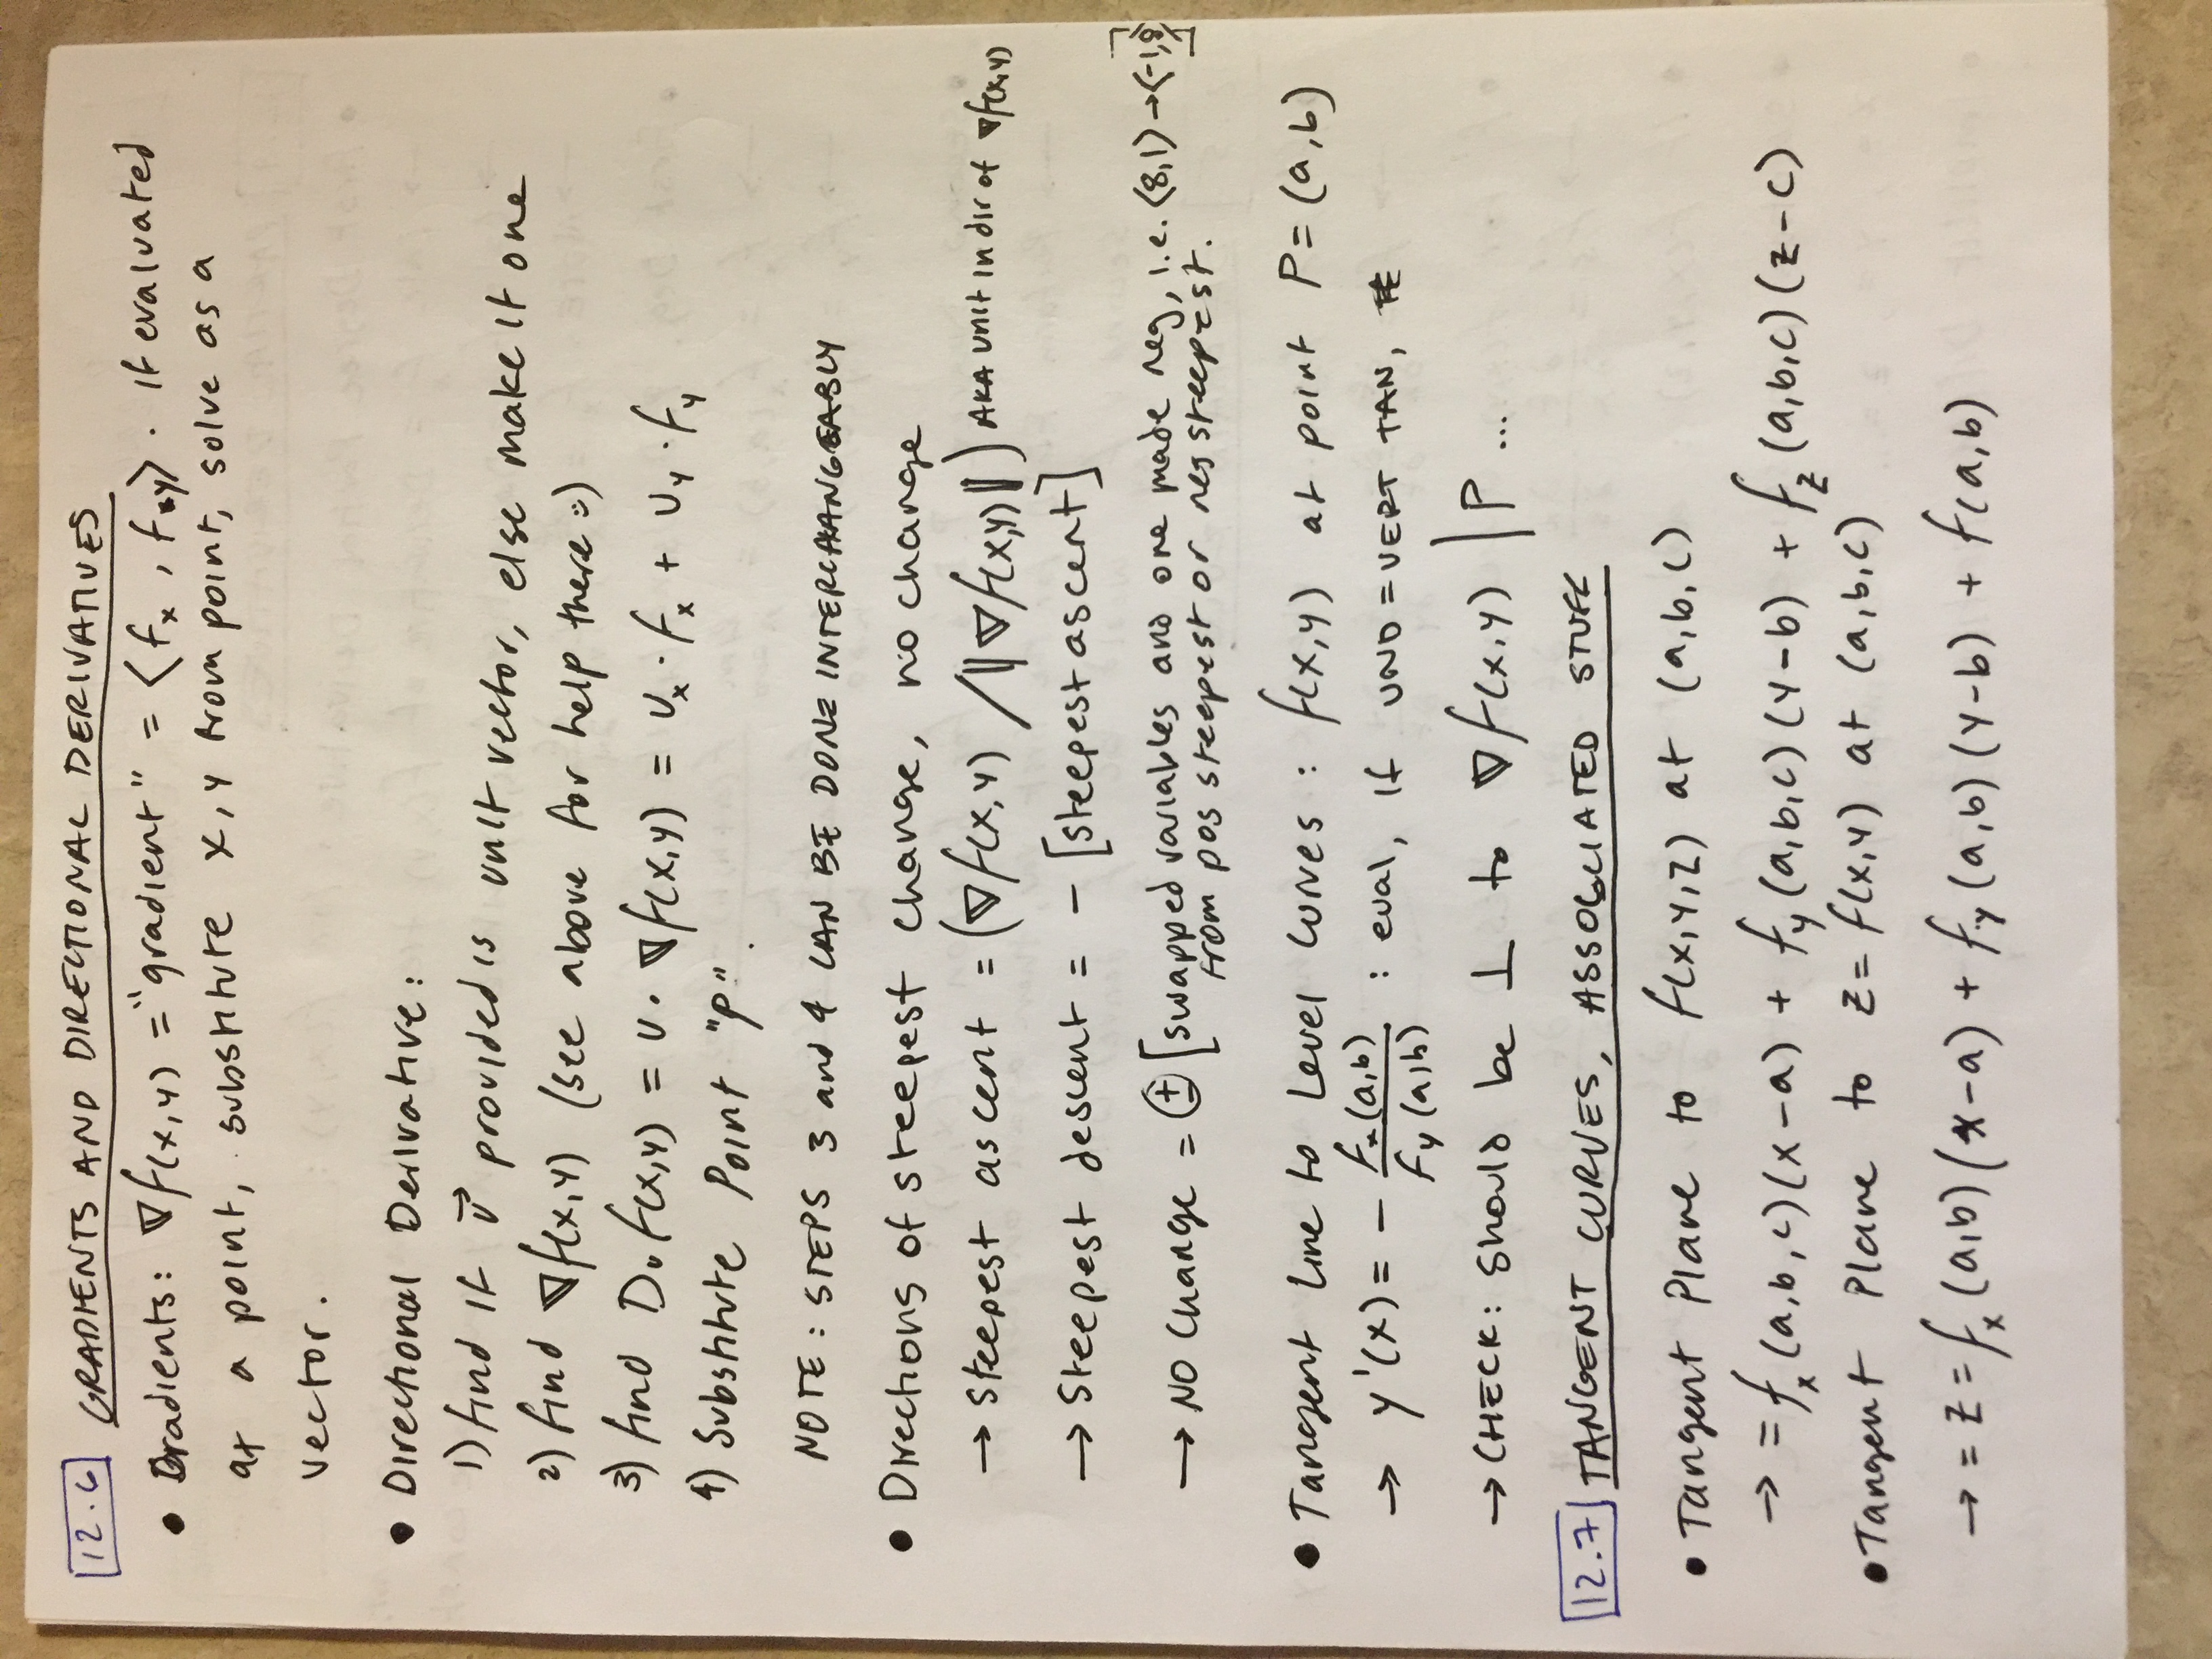 12.6 GRADIENTS AND DIRECTIONAL DERIVATIVES
• Gradients: ∇f(x,y) = "gradient" = ⟨fx, fy⟩. If evaluated
at a point, substitute x, y from point, solve as a
vector.
• Directional Derivative:
1) find if v⃗ provided is unit vector, else make it one
2) find ∇f(x,y) (see above for help there :)
3) find Dᵤf(x,y) = u · ∇f(x,y) = uₓ · fₓ + u_y · f_y
4) Substitute Point "P".
NOTE: STEPS 3 and 4 CAN BE DONE INTERCHANGEABLY
• Directions of steepest change, no change
→ Steepest ascent = (∇f(x,y) / ‖∇f(x,y)‖) AKA unit in dir of ∇f(x,y)
→ Steepest descent = - [steepest ascent]
→ NO Change = ± [swapped variables and one made neg, i.e. ⟨8,1⟩→⟨-1,8⟩]
from pos steepest or neg steepest.
• Tangent Line to Level Curves : f(x,y) at point P = (a,b)
→ y'(x) = - fx(a,b) / fy(a,b) : eval, if UND = VERT TAN,
→ CHECK: should be ⊥ to ∇f(x,y) | P ...
12.7 TANGENT CURVES, ASSOCIATED STUFF
• Tangent Plane to f(x,y,z) at (a,b,c)
→ = fx(a,b,c)(x-a) + fy(a,b,c)(y-b) + fz(a,b,c)(z-c)
• Tangent Plane to z = f(x,y) at (a,b,c)
→ = z = fx(a,b)(x-a) + fy(a,b)(y-b) + f(a,b)